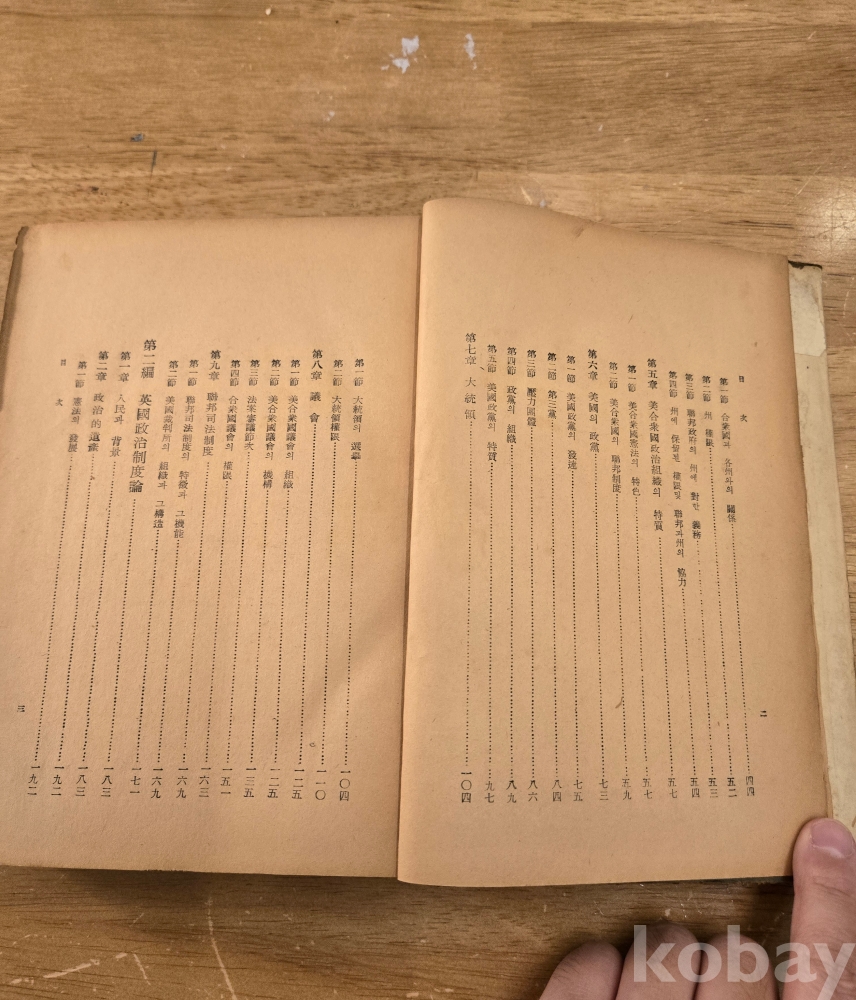 目次
第一節 合衆國과 各州와의 關係……四四
第二節 州權限……五二
第三節 聯邦政府의 州에 對한 義務……五三
第四節 州에 保留된 權限및 聯邦과州의 協力……五四
第五章 美合衆國政治組織의 特質……五七
第一節 美合衆國憲法의 特色……五七
第二節 美合衆國의 聯邦制度……五九
第六章 美國의 政黨……七三
第一節 美國政黨의 發達……七五
第二節 第三黨……八四
第三節 壓力團體……八六
第四節 政黨의 組織……八九
第五節 美國政黨의 特質……九七
第七章 大統領……一〇四
二
第一節 大統領의 選擧……一〇四
第二節 大統領權限……一一〇
第八章 議會……一二五
第一節 美合衆國議會의 組織……一二五
第二節 美合衆國議會의 機構……一三五
第三節 法案審議節次……一五一
第四節 合衆國議會의 權限……一六三
第九章 聯邦司法制度……一六九
第一節 聯邦司法制度의 特徵과 그機能……一六九
第二節 美國裁判所의 組織과 그構造……一七一
第二編 英國政治制度論……一八三
第一章 人民과 背景……一八三
第二章 政治的遺産……一九二
第一節 憲法의 發展……一九二
目次
三
kobay